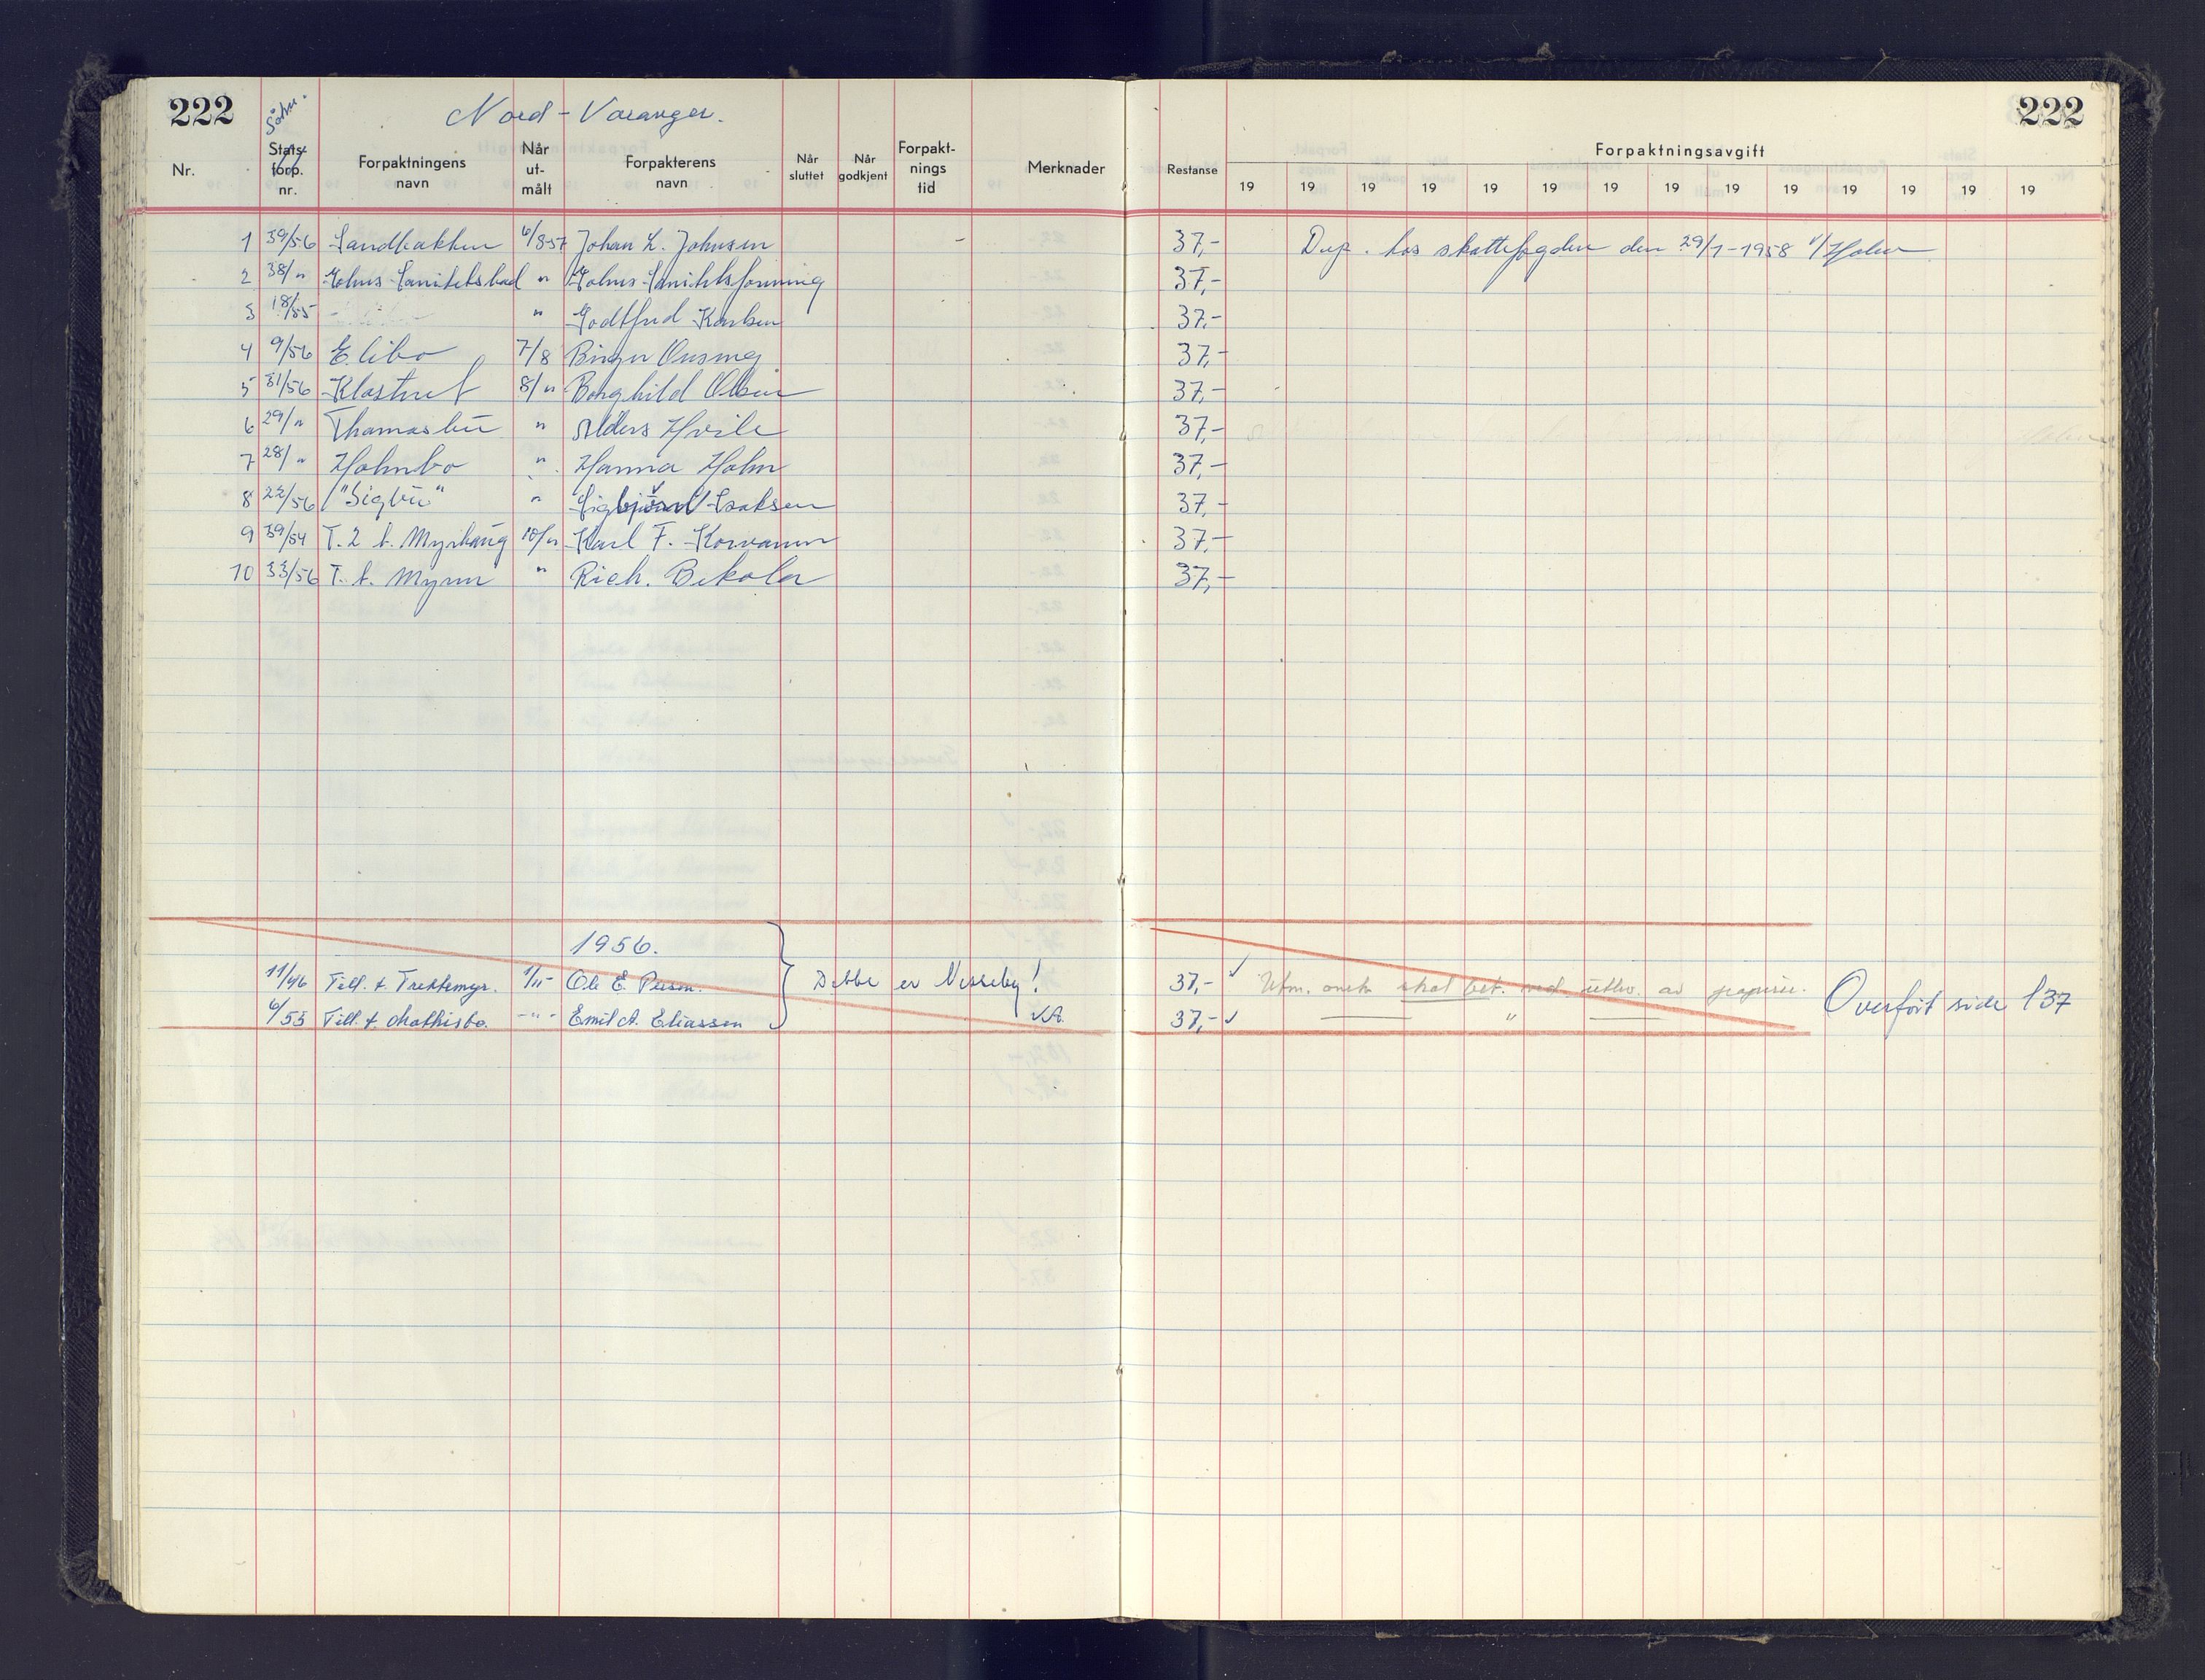 222 Søkn. Nord-Varanger. 222
Nr. Stats-forp. nr. Forpaktningens navn Når ut-målt Forpakterens navn Når sluttet Når godkjent Forpakt-nings tid Merknader Restanse Forpaktningsavgift
19 19 19 19 19 19 19 19 19 19 19 19 19 19
1 39/56 Sandbakken 6/8-57 Johan L. Johnsen 37,- Dep. hos skattefogden den 29/1-1958 Holm
2 38/" " 37,-
3 18/55 " Godtfred Karlsen 37,-
4 9/56 Elibo 7/8 Birger 37,-
5 31/56 Klostret 8/" Borghild Olsen 37,-
6 29/" Thomasbu " Alders Hvile 37,-
7 28/" Holmbo " Hanna Holm 37,-
8 22/56 "Sigbu" " Sigbjørn Isaksen 37,-
9 39/54 T. 2 t. Myrhaug 10/" Karl F. 37,-
10 33/56 T. t. Myren " Rich. Bekola 37,-
1956.
11/46 Till. t. Trektemyr. 1/11- Ole E. Dette er Nesseby! 37,- skal bet. ved utlev. av papirer.
6/55 Till. t. Mathisbo. -"- Emil A. Eliassen 37,- " Overført side 137